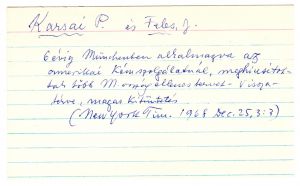 Karsai P. és Feles, J.
6 évig Münchenben alkalmazva az
amerikai kémszolgálatnál, meghiusitot-
tak több M. ország ellenes tervet. Vissza-
térve, magas kitüntetés.
(New York Tim. 1968 Dec. 25, 3:3)